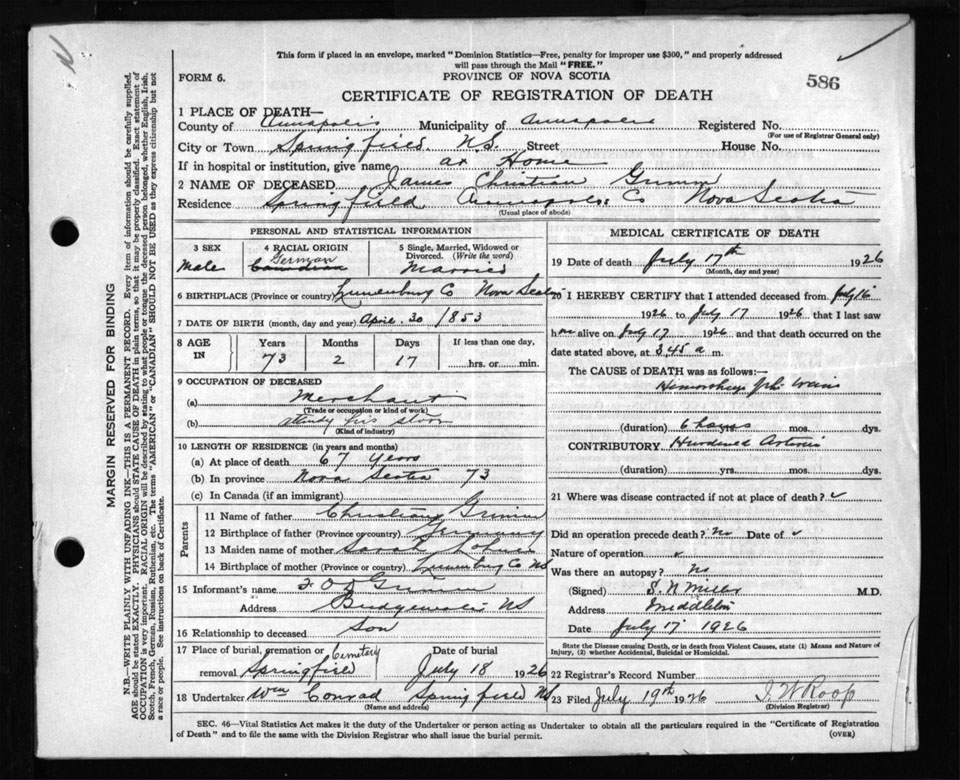 This form if placed in an envelope, marked "Dominion Statistics—Free, penalty for improper use $300," and properly addressed
will pass through the Mail "FREE."
FORM 6.
PROVINCE OF NOVA SCOTIA
586
CERTIFICATE OF REGISTRATION OF DEATH
1 PLACE OF DEATH—
County of Annapolis Municipality of Annapolis Registered No.
(For use of Registrar General only)
City or Town Springfield N.S. Street House No.
If in hospital or institution, give name at Home
2 NAME OF DECEASED James Christian Grimm
Residence Springfield Annapolis Co Nova Scotia
(Usual place of abode)
PERSONAL AND STATISTICAL INFORMATION
3 SEX
Male
4 RACIAL ORIGIN
German
Canadian
5 Single, Married, Widowed or
Divorced. (Write the word)
Married
6 BIRTHPLACE (Province or country) Lunenburg Co Nova Scotia
7 DATE OF BIRTH (month, day and year) April 30 1853
8 AGE
IN
Years
73
Months
2
Days
17
If less than one day,
hrs. or min.
9 OCCUPATION OF DECEASED
(a) Merchant
(Trade or occupation or kind of work)
(b) attendg his store
(Kind of industry)
10 LENGTH OF RESIDENCE (in years and months)
(a) At place of death 67 years
(b) In province Nova Scotia 73
(c) In Canada (if an immigrant)
Parents
11 Name of father Christian Grimm
12 Birthplace of father (Province or country) Germany
13 Maiden name of mother Sarah
14 Birthplace of mother (Province or country) Lunenburg Co NS
15 Informant's name F O Grimm
Address Bridgewater NS
16 Relationship to deceased Son
17 Place of burial, cremation or Cemetery
removal Springfield
Date of burial
July 18 1926
18 Undertaker Wm Conrad Springfield NS
(Name and address)
MEDICAL CERTIFICATE OF DEATH
19 Date of death July 17th 1926
(Month, day and year)
20 I HEREBY CERTIFY that I attended deceased from July 16
1926 to July 17 1926 that I last saw
h alive on July 17 1926 and that death occurred on
date stated above, at 3.45 a m.
The CAUSE of DEATH was as follows:—
Hemorrhage
(duration) 6 hours mos. dys.
CONTRIBUTORY Hardened Arteries
(duration) yrs. mos. dys.
21 Where was disease contracted if not at place of death?
Did an operation precede death? No Date of
Nature of operation
Was there an autopsy? No
(Signed) S. N Miller M.D.
Address Middleton
Date July 17 1926
State the Disease causing Death, or in death from Violent Causes, state (1) Means and Nature of
Injury, (2) whether Accidental, Suicidal or Homicidal.
22 Registrar's Record Number
23 Filed July 19th 1926 J. W Roop
(Division Registrar)
SEC. 46—Vital Statistics Act makes it the duty of the Undertaker or person acting as Undertaker to obtain all the particulars required in the "Certificate of Registration
of Death" and to file the same with the Division Registrar who shall issue the burial permit.
(OVER)
MARGIN RESERVED FOR BINDING
N.B.—WRITE PLAINLY WITH UNFADING INK—THIS IS A PERMANENT RECORD. Every item of information should be carefully supplied.
AGE should be stated EXACTLY. PHYSICIANS should STATE CAUSE OF DEATH in plain terms, so that it may be properly classified. Exact statement of
OCCUPATION is very important. RACIAL ORIGIN will be described by stating to what people or tongue the deceased person belonged, whether English, Irish,
Scotch, French, German, Russian, Ruthenian, etc. The terms "AMERICAN" or "CANADIAN" SHOULD NOT BE USED as they express citizenship but not
a race or people. See instructions on back of Certificate.